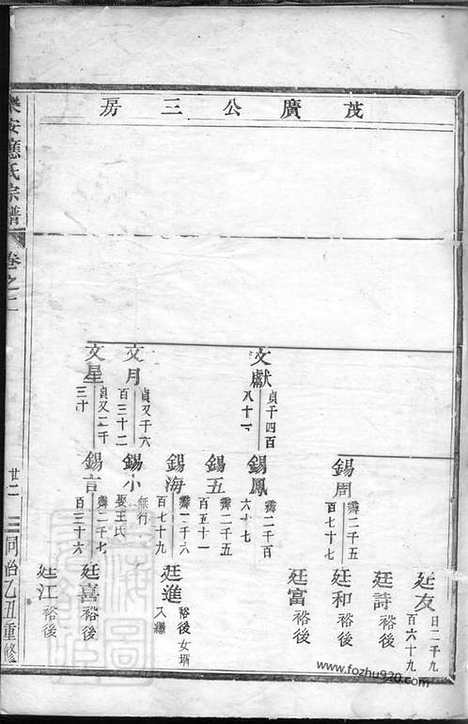 茂廣公三房
文獻
貞千四百
八十一
文月
貞又千六
百三十二
文星
貞又二千
錫周
霽二千五
百七十七
錫鳳
霽二千百
六十七
錫五
霽二千五
百五十一
錫海
霽二千六
百七十九
錫小
無行
娶王氏
錫言
霽二千七
百三十六
廷友
日二千九
百六十九
廷詩
裕後
廷和
裕後
廷富
裕後
廷進
裕後女壻
入繼
廷喜
裕後
廷江
裕後
樂安應氏宗譜
卷之二
廿二
同治乙丑重修
www.fozhu920.com